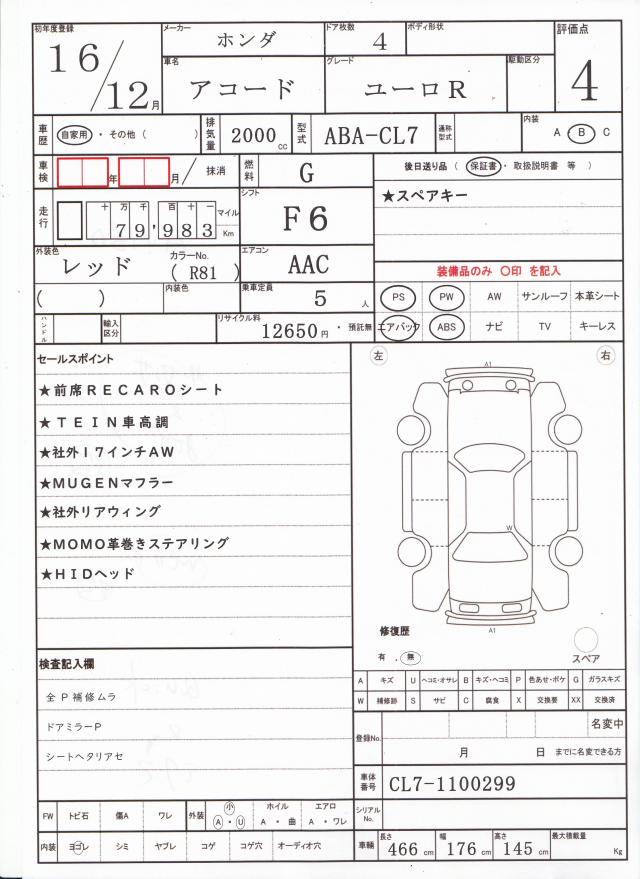 初年度登録 メーカー ホンダ ドア枚数 4 ボディ形状 評価点
16/12月 車名 アコード グレード ユーロR 駆動区分 4
車歴 自家用 ・ その他 ( ) 排気量 2000cc 型式 ABA-CL7 通称型式 内装 A ・ B ・ C
車検 年 月 / 抹消 燃料 G 後日送り品 ( 保証書 ・ 取扱説明書 等 )
走行 十 万 千 百 十 一 79,983 マイル Km シフト F6 ★スペアキー
外装色 レッド カラーNo. ( R81 ) エアコン AAC 装備品のみ 〇印 を記入
( ) 内装色 乗車定員 5 人 PS PW AW サンルーフ 本革シート
ハンドル 輸入区分 リサイクル料 12650円 ・ 預託無 エアバック ABS ナビ TV キーレス
セールスポイント
★前席RECAROシート
★TEIN車高調
★社外17インチAW
★MUGENマフラー
★社外リアウィング
★MOMO革巻きステアリング
★HIDヘッド
左 右
A1
W
A1
修復歴
有 . 無
スペア
検査記入欄
全P補修ムラ
ドアミラーP
シートヘタリアセ
A キズ U ヘコミ・オサレ B キズ・ヘコミ P 色あせ・ボケ G ガラスキズ
W 補修跡 S サビ C 腐食 X 交換要 XX 交換済
登録No. 名変中
月 日 までに名変できる方
車体番号 CL7-1100299
シリアルNo.
FW トビ石 傷A ワレ 外装 小 A ・ U ホイル A ・ 曲 エアロ A ・ ワレ
内装 ヨゴレ シミ ヤブレ コゲ コゲ穴 オーディオ穴
車輛 長さ 466 cm 幅 176 cm 高さ 145 cm 最大積載量 Kg